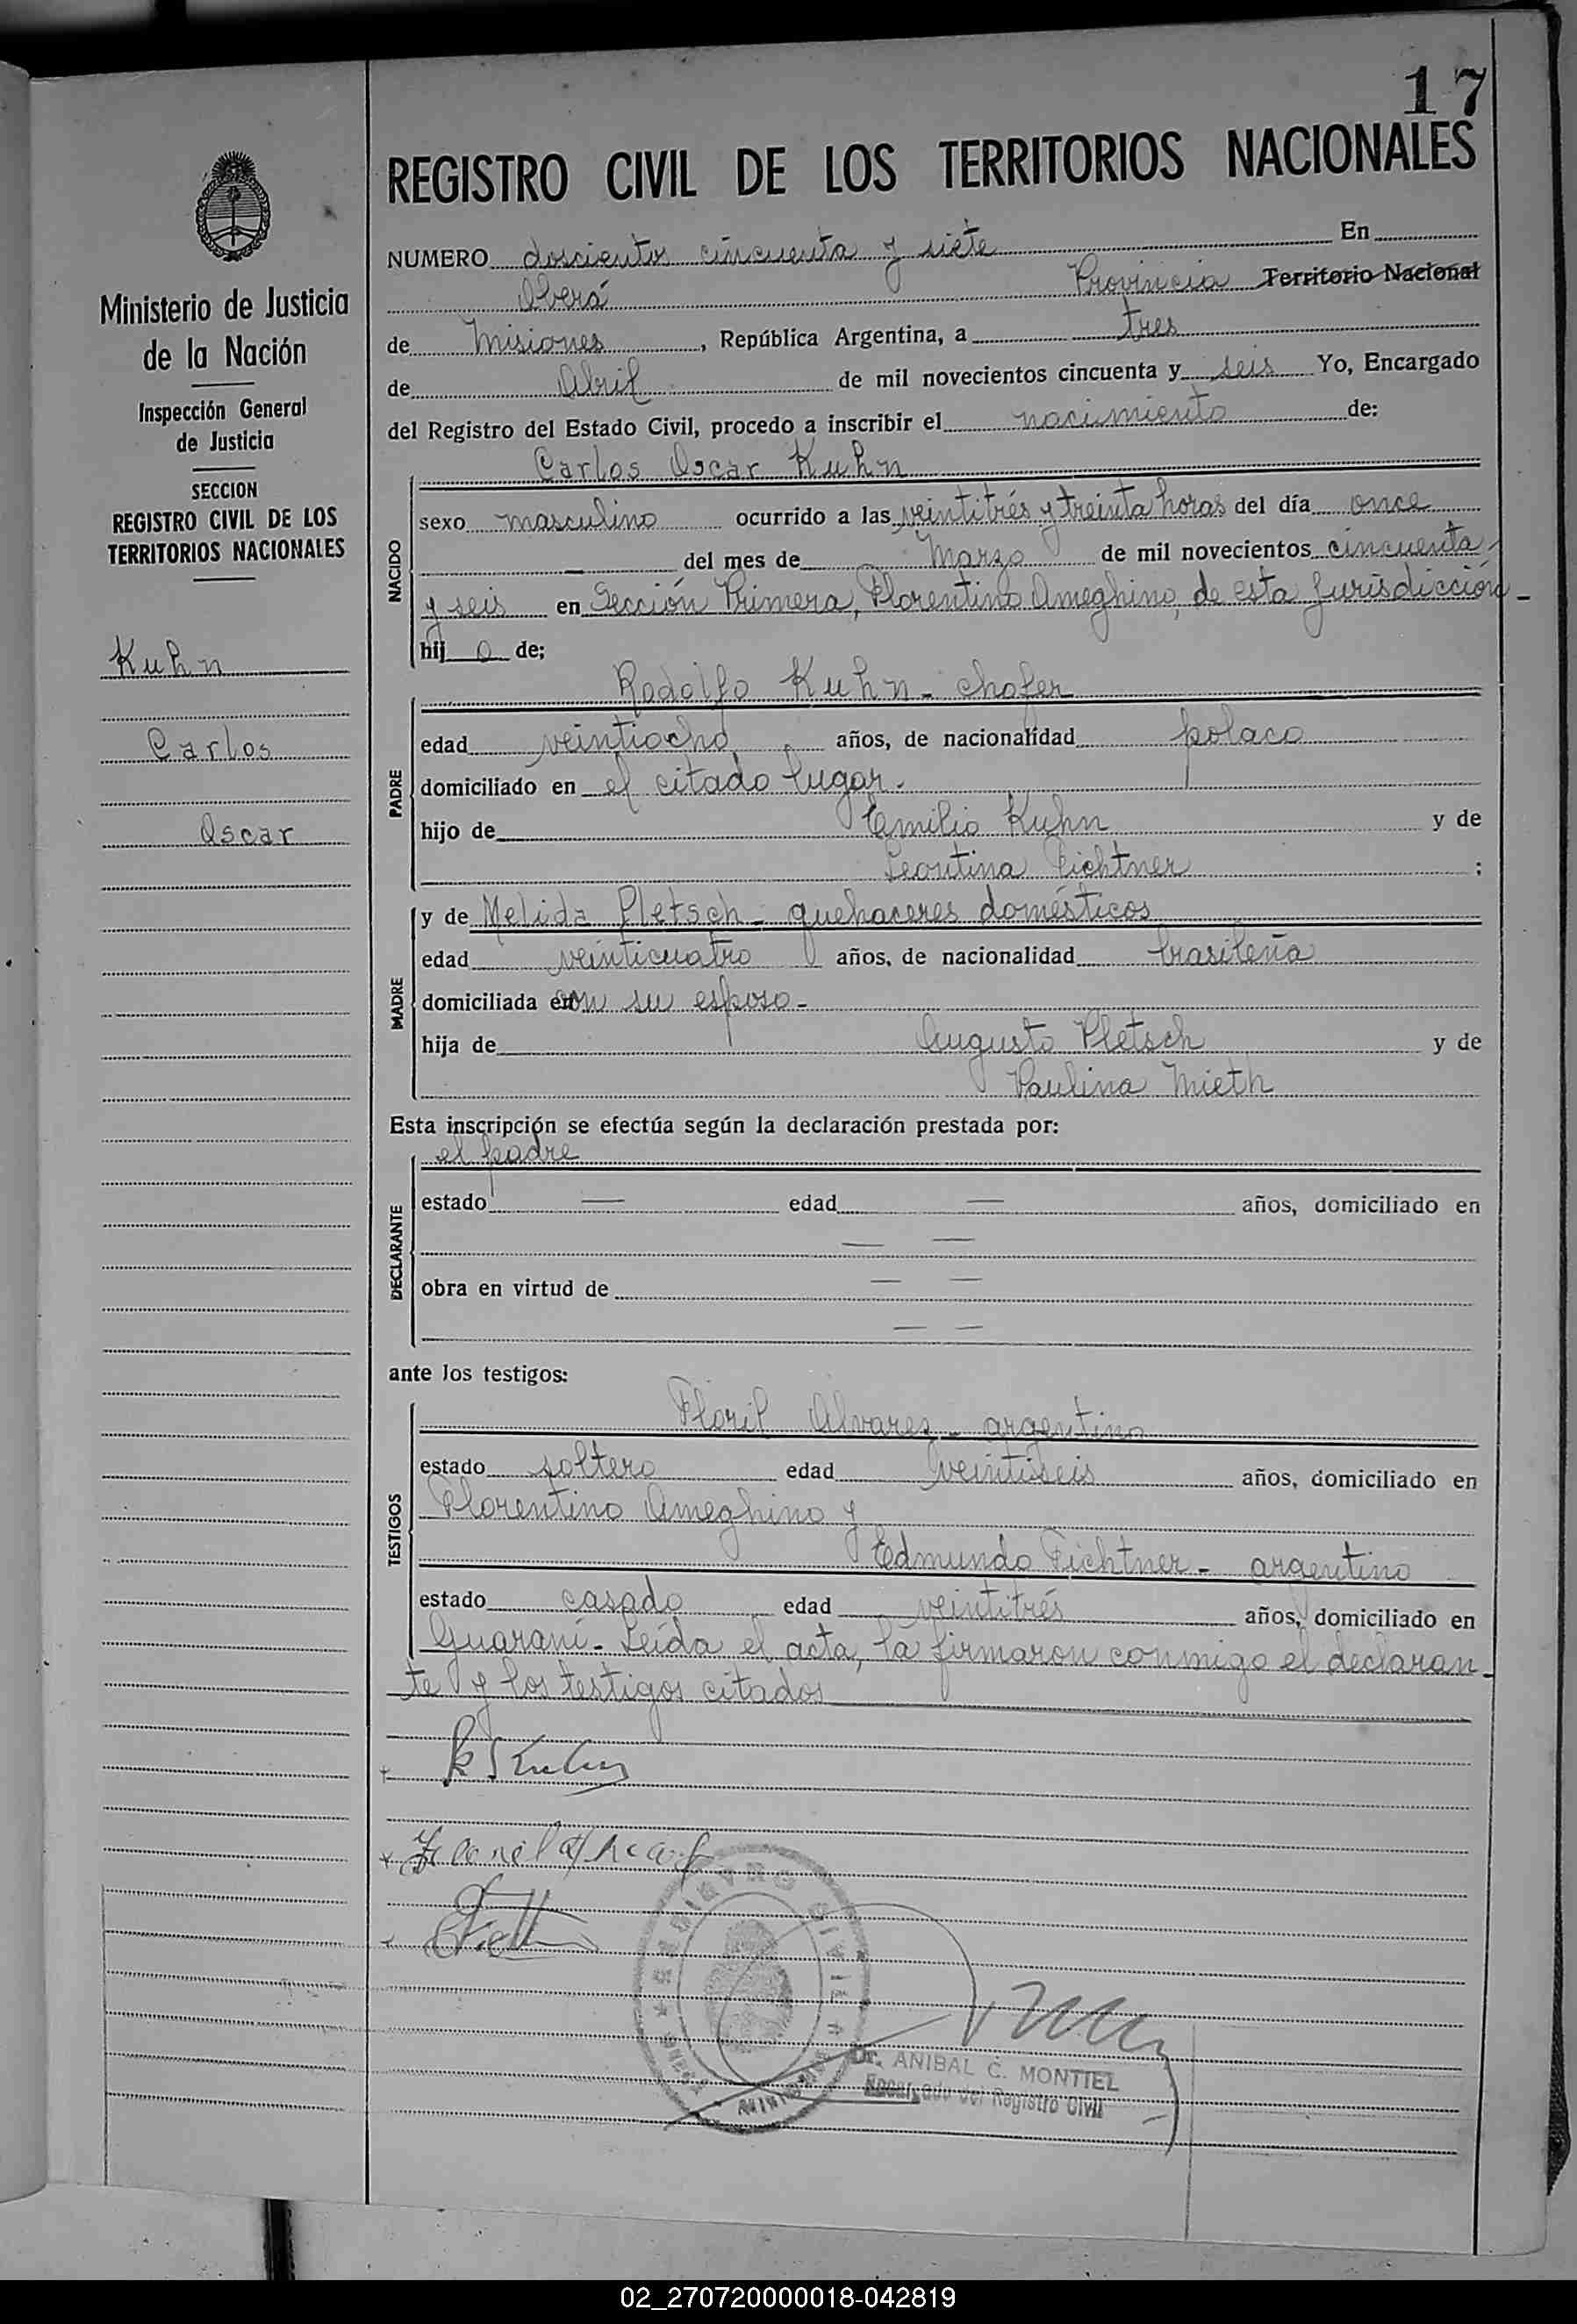 17
REGISTRO CIVIL DE LOS TERRITORIOS NACIONALES
Ministerio de Justicia
de la Nación
Inspección General
de Justicia
SECCION
REGISTRO CIVIL DE LOS
TERRITORIOS NACIONALES
Kuhn
Carlos
Oscar
NUMERO doscientos cincuenta y siete En
Oberá Provincia Territorio Nacional
de Misiones, República Argentina, a tres
de Abril de mil novecientos cincuenta y seis Yo, Encargado
del Registro del Estado Civil, procedo a inscribir el nacimiento de:
Carlos Oscar Kuhn
NACIDO
sexo masculino ocurrido a las veintitrés y treinta horas del día once
— del mes de Marzo de mil novecientos cincuenta
y seis en Sección Primera, Florentino Ameghino, de esta Jurisdicción -
hij o de;
Rodolfo Kuhn - chofer
PADRE
edad veintiocho años, de nacionalidad polaco
domiciliado en el citado lugar.
hijo de Emilio Kuhn y de
Leontina Fichtner ;
MADRE
y de Melida Pletsch - quehaceres domésticos
edad veinticuatro años, de nacionalidad brasileña
domiciliada en con su esposo -
hija de Augusto Pletsch y de
Paulina Mieth
Esta inscripción se efectúa según la declaración prestada por:
el padre
DECLARANTE
estado — edad — años, domiciliado en
— —
obra en virtud de — —
— —
ante los testigos:
Floril Alvarez - argentino
TESTIGOS
estado soltero edad veintiseis años, domiciliado en
Florentino Ameghino y
Edmundo Fichtner - argentino
estado casado edad veintitrés años, domiciliado en
Guaraní - Leída el acta, la firmaron conmigo el declaran-
te y los testigos citados
REGISTRO CIVIL
Dr. ANIBAL C. MONTIEL
Encargado del Registro Civil
02_270720000018-042819